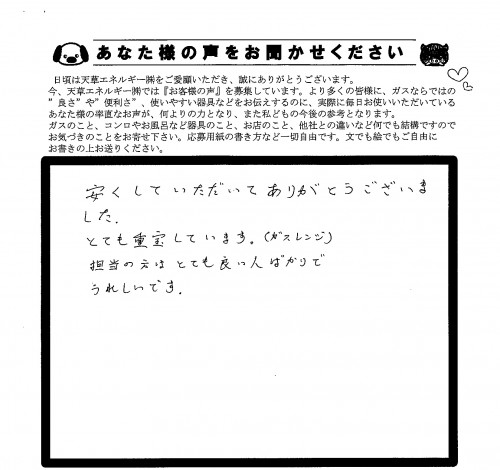 あなた様の声をお聞かせください
日頃は天草エネルギー㈱をご愛顧いただき、誠にありがとうございます。
今、天草エネルギー㈱では『お客様の声』を募集しています。より多くの皆様に、ガスならではの
"良さ"や"便利さ"、使いやすい器具などをお伝えするのに、実際に毎日お使いいただいている
あなた様の率直なお声が、何よりの力となり、また私どもの今後の参考となります。
ガスのこと、コンロやお風呂など器具のこと、お店のこと、他社との違いなど何でも結構ですので
お気づきのことをお寄せ下さい。応募用紙の書き方など一切自由です。文でも絵でもご自由に
お書きの上お送りください。
安くしていただいてありがとうございま
した.
とても重宝しています。(ガスレンジ)
担当の方はとても良い人ばかりで
うれしいです.